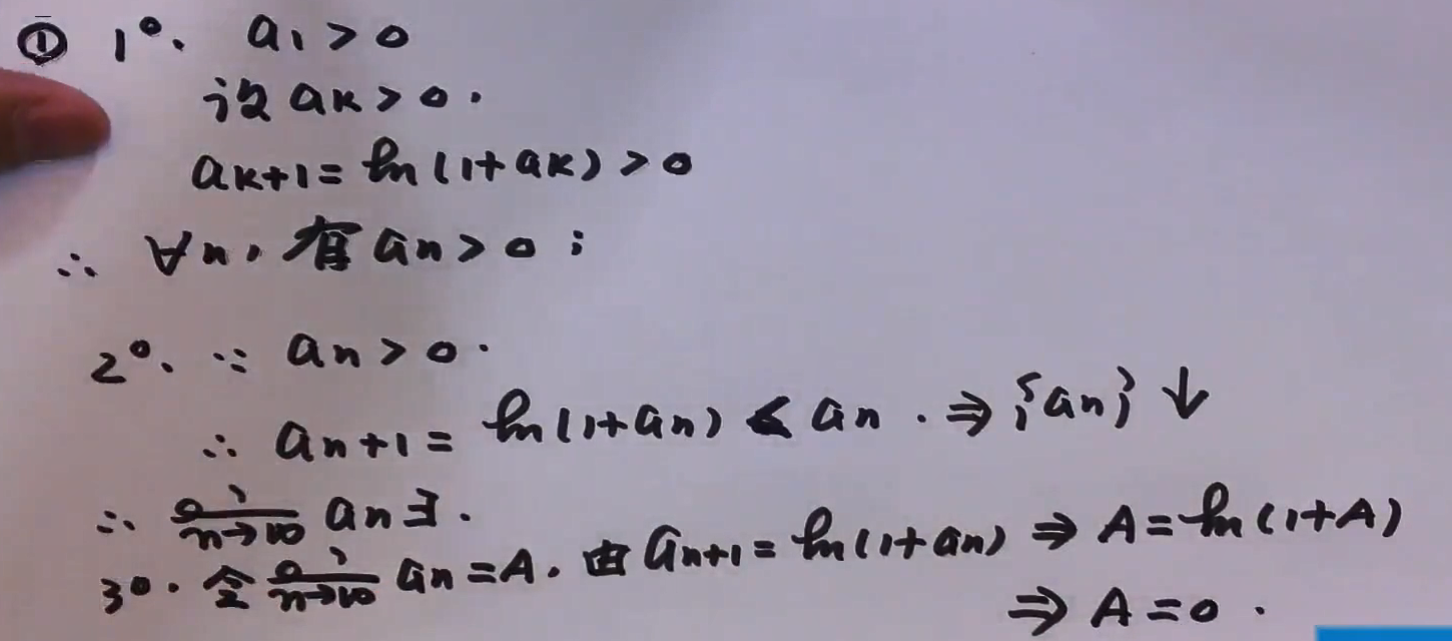 ① 1°. a₁>0
设 aₖ>0.
aₖ₊₁=ln(1+aₖ)>0
∴ ∀n, 有 aₙ>0;
2°. ∵ aₙ>0.
∴ aₙ₊₁=ln(1+aₙ)<aₙ. ⇒{aₙ}↓
∴ lim n→∞ aₙ∃.
3°. 令 lim n→∞ aₙ=A. 由 aₙ₊₁=ln(1+aₙ) ⇒ A=ln(1+A)
⇒ A=0.